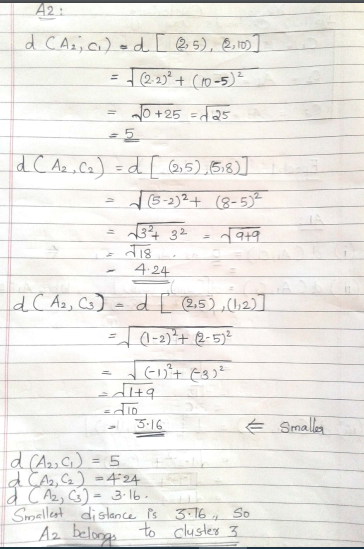 A2:
d(A2, C1) = d[ (2,5), (2,10)]
= √(2-2)² + (10-5)²
= √0+25 = √25
= 5
d(A2, C2) = d[ (2,5), (5,8)]
= √(5-2)² + (8-5)²
= √3² + 3² = √9+9
= √18
= 4.24
d(A2, C3) = d[ (2,5), (1,2)]
= √(1-2)² + (2-5)²
= √(-1)² + (-3)²
= √1+9
= √10
= 3.16 ⇐ Smaller
d(A2, C1) = 5
d(A2, C2) = 4.24
d(A2, C3) = 3.16.
Smallest distance is 3.16, so
A2 belongs to cluster 3